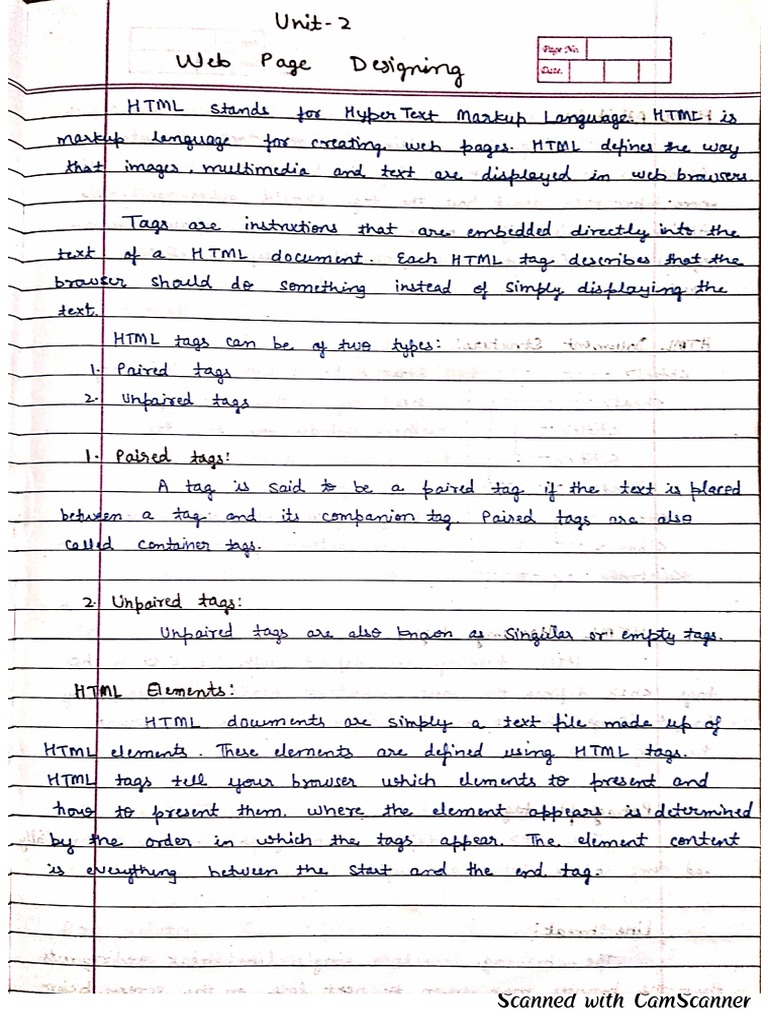 Unit-2
Web Page Designing
Page No.
Date.
HTML stands for HyperText Markup Language. HTML is
markup language for creating web pages. HTML defines the way
that images, multimedia and text are displayed in web browsers.
Tags are instructions that are embedded directly into the
text of a HTML document. Each HTML tag describes that the
browser should do something instead of simply displaying the
text.
HTML tags can be of two types:
1. Paired tags
2. Unpaired tags
1. Paired tags:
A tag is said to be a paired tag if the text is placed
between a tag and its companion tag. Paired tags are also
called container tags.
2. Unpaired tags:
Unpaired tags are also known as Singular or empty tags.
HTML Elements:
HTML documents are simply a text file made up of
HTML elements. These elements are defined using HTML tags.
HTML tags tell your browser which elements to present and
how to present them. Where the element appears is determined
by the order in which the tags appear. The element content
is everything between the start and the end tag.
Scanned with CamScanner